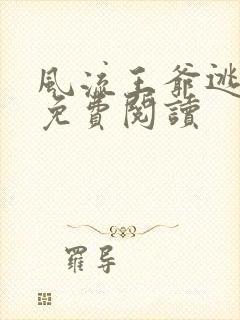 風流王爺逃
免費閱讀
羅导